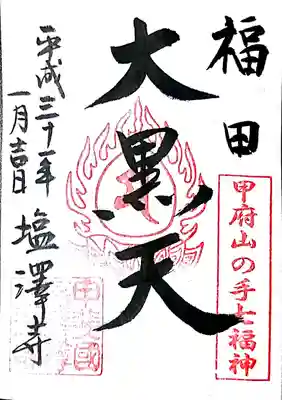 福田
甲府山の手七福神
大黒天
平成三十一年
一月吉日
塩澤寺